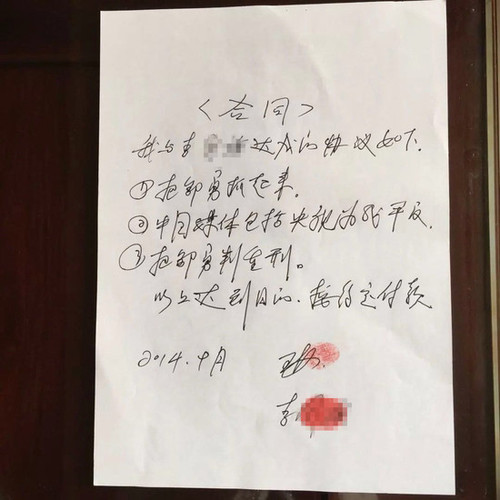 〈合同〉
我与李 达成的协议如下.
①把邹勇抓起来.
②中国媒体包括央视为我平反.
③把邹勇判重刑。
以上达到目的.按约定付款
2014.9月 王
李